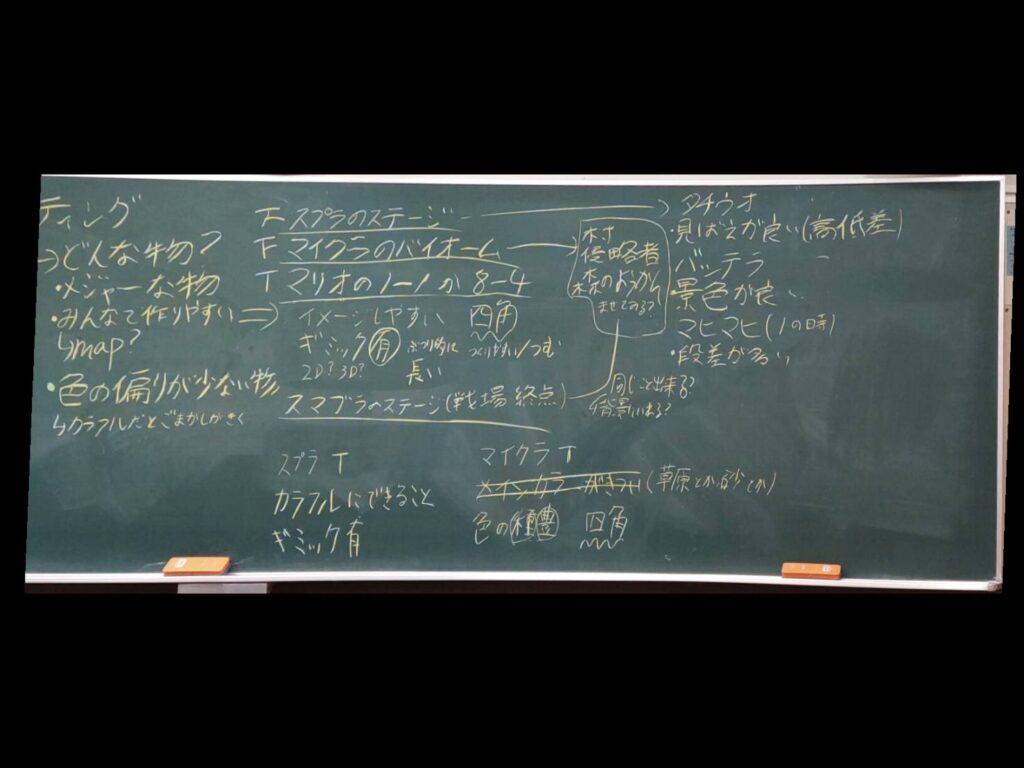 ティング
→どんな物?
・メジャーな物
・みんなで作りやすい ⇒
↳map?
・色の偏りが少ない物
↳カラフルだとごまかしがきく
F スプラのステージ →
F マイクラのバイオーム →
T マリオの1-1か8-4
イメージしやすい 四角
ギミック有 つくりやすい/つむ
2D?3D? 長い
スマブラのステージ(戦場 終点)
村
侵略者
森のようかん
ませてみる?
同じこと出来る?
背景いれる?
タチウオ
・見ばえが良い(高低差)
バッテラ
・景色が良い
マヒマヒ(1の時)
・段差がるい
スプラ T
カラフルにできること
ギミック有
マイクラ T
(草原とか砂とか)
色の種豊 四角